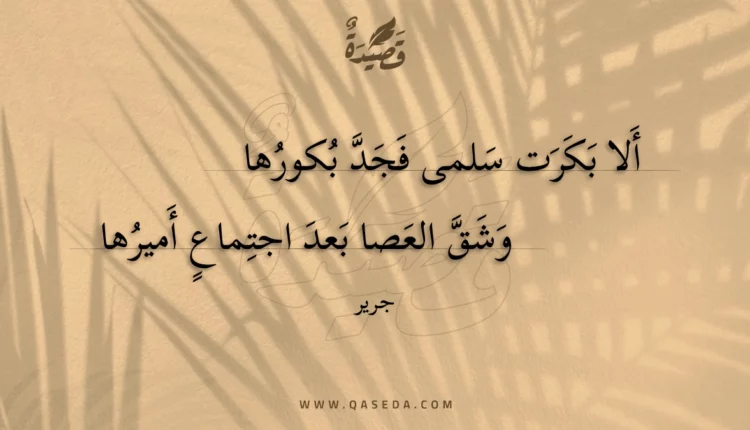 قَصِيدَةٌ
أَلا بَكَرَت سَلمى فَجَدَّ بُكورُها
وَشَقَّ العَصا بَعدَ اجتِماعٍ أَميرُها
جرير
WWW.QASEDA.COM